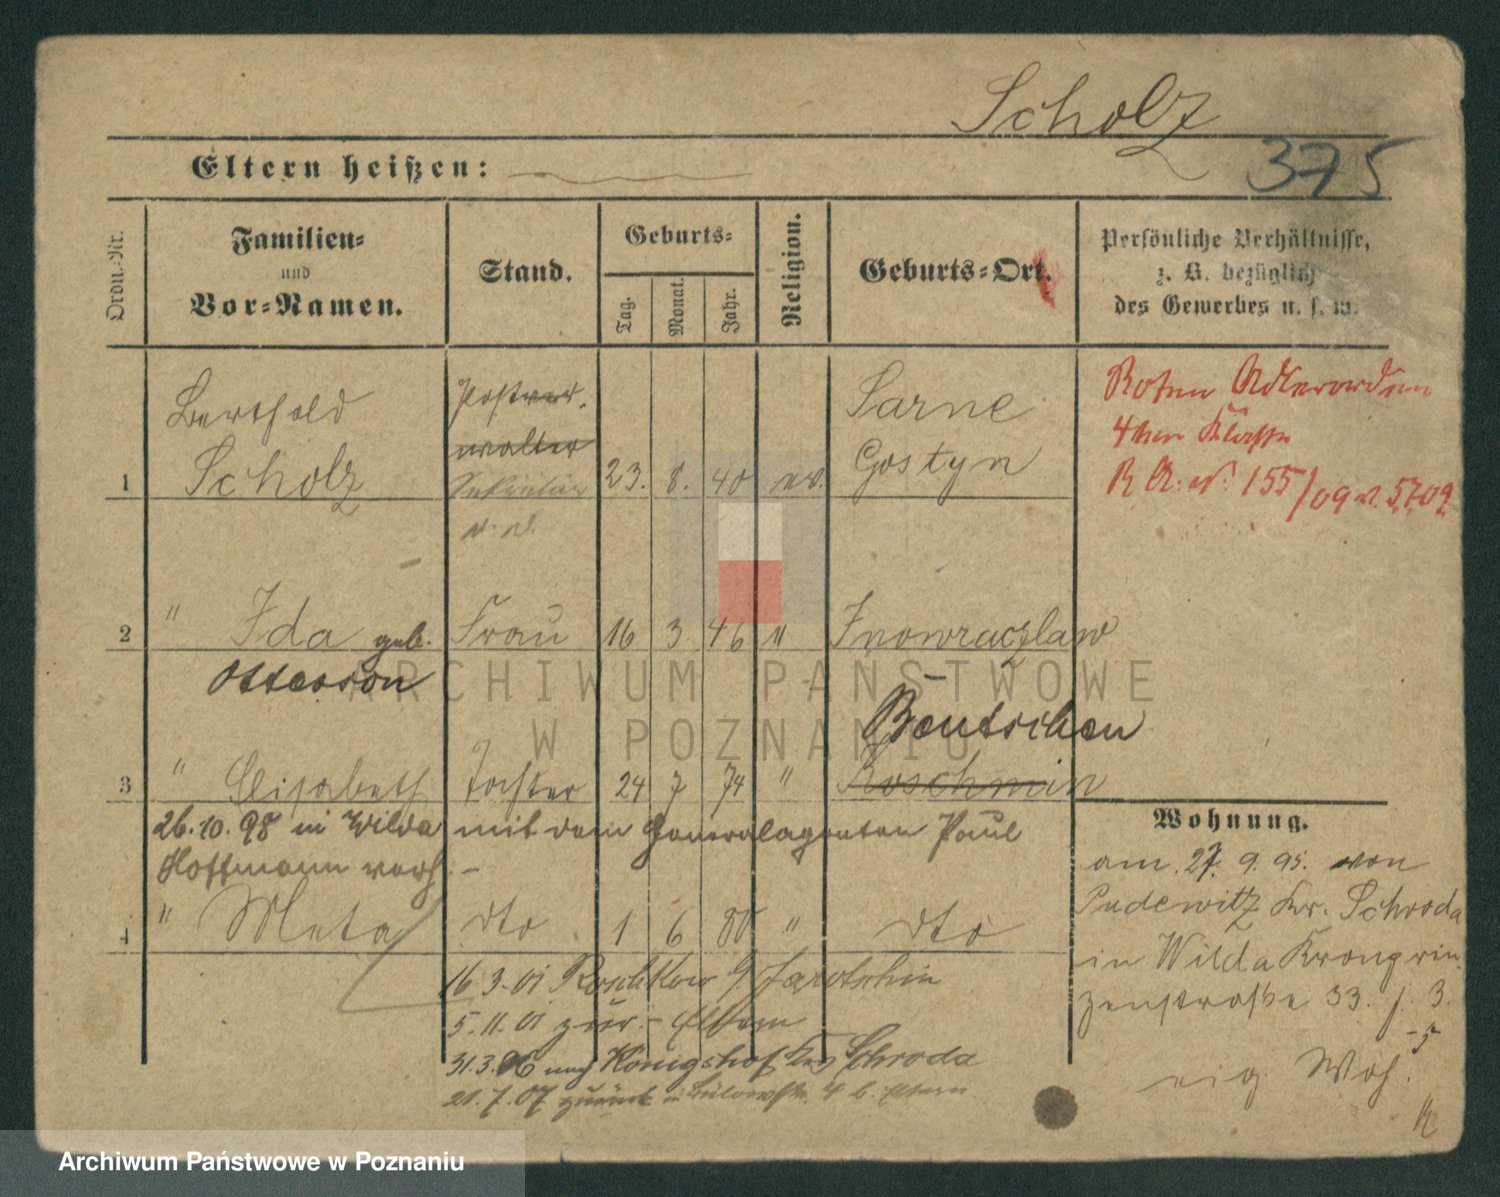 Scholz
375
Eltern heißen:
Ordn.-Nr.
Familien-
und
Vor-Namen.
Stand.
Geburts-
Tag.
Monat.
Jahr.
Religion.
Geburts-Ort.
Persönliche Verhältnisse,
z. B. bezüglich
des Gewerbes u. s. w.
Berthold
Scholz
Postver-
walter
Sekretär
a. D.
1
23. 8. 40 ev.
Sarne
Gostyn
Roten Adlerorden
4ter Klasse
155/09 5.7.09.
2
" Ida geb. Frau 16 3 46 " Inowrazlaw
Ottesson
Bentschen
3
" Elisabeth Tochter 24 7 74 " Koschmin
26.10.98 in Wilda mit dem Generalagenten Paul
Hoffmann verh. -
4
" Meta dto 1 6 80 " dto
16.3.01 Roschkow Jarotschin
5.11.01 zur. - Eltern
31.3.06 nach Königshof Krs Schroda
21.7.07 zurück Bülowstr. 4 b. Eltern
Wohnung.
am 27. 9. 95. von
Pudewitz Kr. Schroda
in Wilda Kronprin-
zenstraße 33.
eig. Woh.
ARCHIWUM PAŃSTWOWE
W POZNANIU
Archiwum Państwowe w Poznaniu